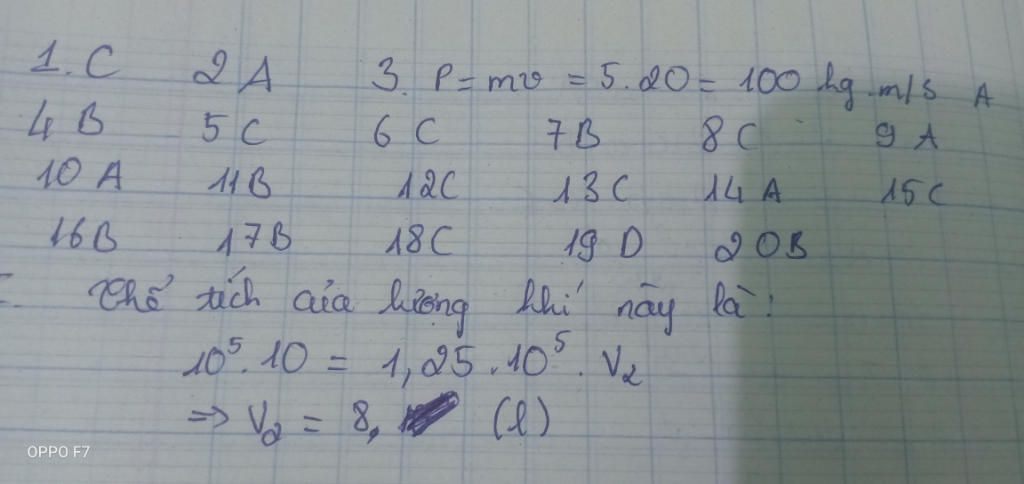 1. C 2 A 3. P = mv = 5.20 = 100 kg.m/s A
4 B 5 C 6 C 7B 8 C 9 A
10 A 11B 12C 13C 14 A 15C
16B 17B 18C 19 D 20B
Thể tích của lượng khí này là:
10⁵.10 = 1,25.10⁵. V₂
=> V₂ = 8, (l)
OPPO F7